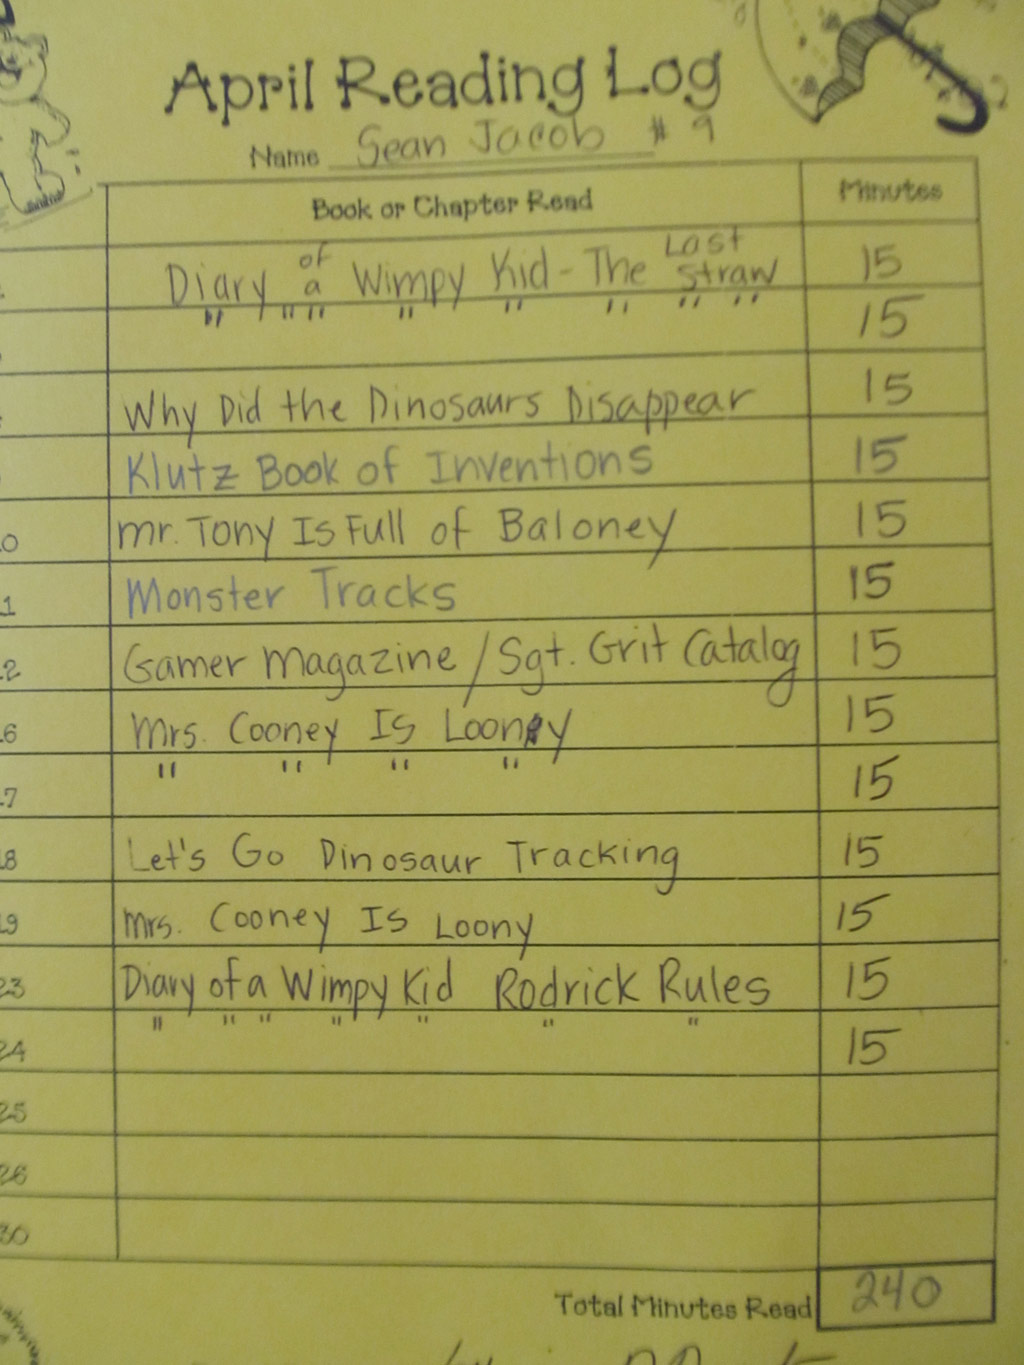 April Reading Log
Name Sean Jacob #9
Book or Chapter Read Minutes
Diary of a Wimpy Kid - The Last Straw 15
" " " " " " " " 15
Why Did the Dinosaurs Disappear 15
Klutz Book of Inventions 15
10 mr. Tony Is Full of Baloney 15
11 Monster Tracks 15
12 Gamer Magazine / Sgt. Grit Catalog 15
16 Mrs. Cooney Is Loony 15
17 " " " " 15
18 Let's Go Dinosaur Tracking 15
19 Mrs. Cooney Is Loony 15
23 Diary of a Wimpy Kid Rodrick Rules 15
24 " " " " " " " 15
25
26
30
Total Minutes Read 240